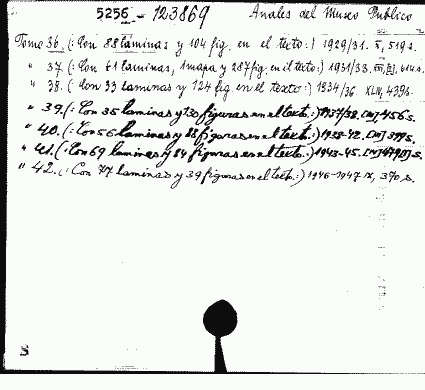 5256 - 123869 Anales del Museo Publico
Tomo 36. (: Con 88 laminas y 104 fig. en el texto:) 1929/31. X, 519 s.
" 37. (: Con 61 laminas, 1 mapa y 287 fig. en el texto:) 1931/33. 614 s.
" 38. (: Con 93 laminas y 124 fig en el texto:) 1934/36. XLIV, 439 s.
" 39. (: Con 35 laminas y 130 figuras en el text.:) 1937/38. [III] 456 s.
" 40. (: Con 56 laminas y 88 figuras en el text.:) 1938-42. [III] 399 s.
" 41. (: Con 69 laminas y 84 figuras en el text.:) 1943-45. [III] 479 [1] s.
" 42. (: Con 77 laminas y 39 figuras en el text.:) 1946-1947 IX, 390 s.
S